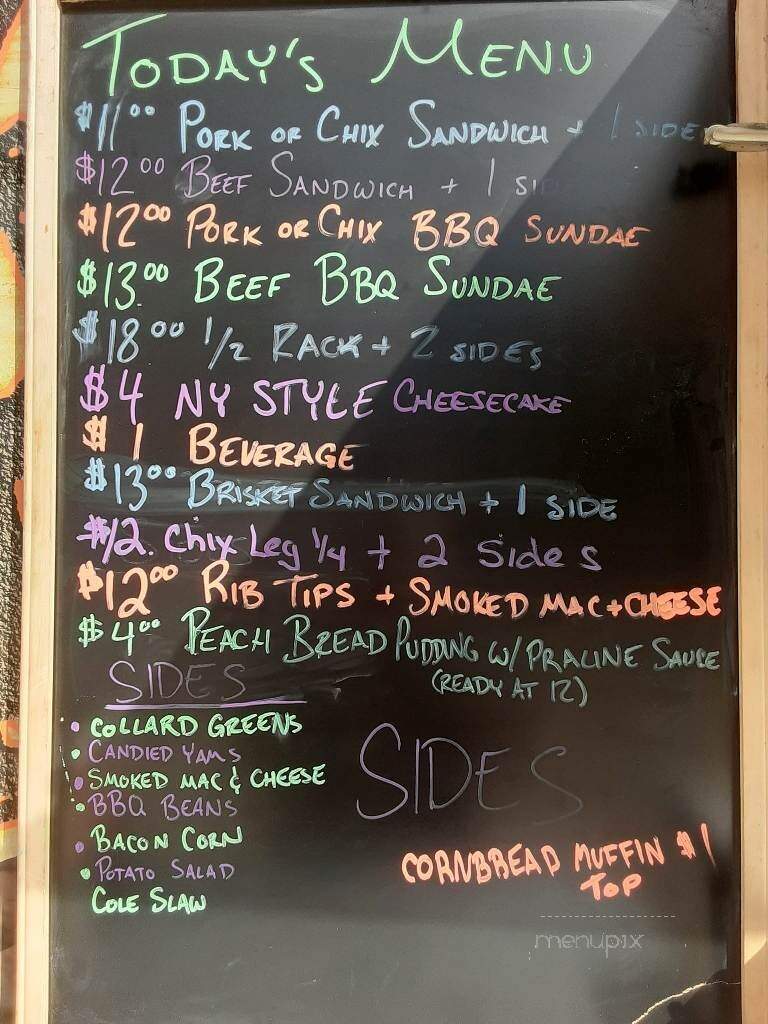 TODAY'S MENU
$11⁰⁰ PORK OR CHIX SANDWICH + 1 SIDE
$12⁰⁰ BEEF SANDWICH + 1 SIDE
$12⁰⁰ PORK OR CHIX BBQ SUNDAE
$13.⁰⁰ BEEF BBQ SUNDAE
$18⁰⁰ 1/2 RACK + 2 SIDES
$4 NY STYLE CHEESECAKE
$1 BEVERAGE
$13⁰⁰ BRISKET SANDWICH + 1 SIDE
$12. Chix Leg 1/4 + 2 Sides
$12⁰⁰ RIB TIPS + SMOKED MAC+CHEESE
$4⁰⁰ PEACH BREAD PUDDING W/ PRALINE SAUCE
(READY AT 12)
SIDES
• COLLARD GREENS
• CANDIED YAMS
• SMOKED MAC & CHEESE
• BBQ BEANS
• BACON CORN
• POTATO SALAD
COLE SLAW
SIDES
CORNBREAD MUFFIN $1
TOP
menupix